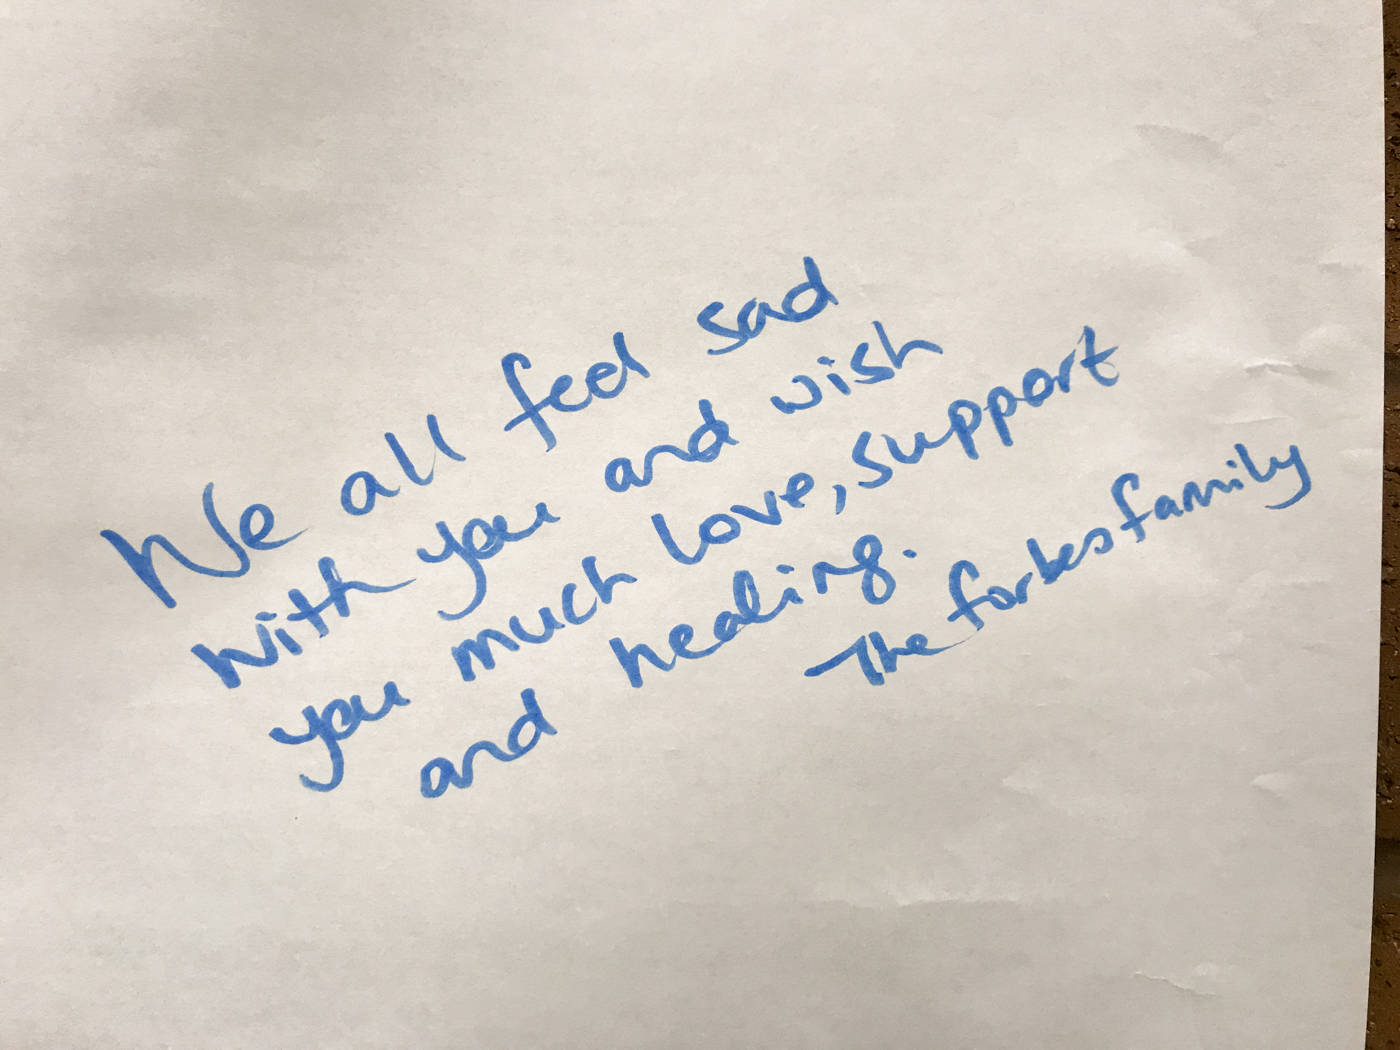 We all feel sad
with you and wish
you much love, support
and healing.
The forbes family